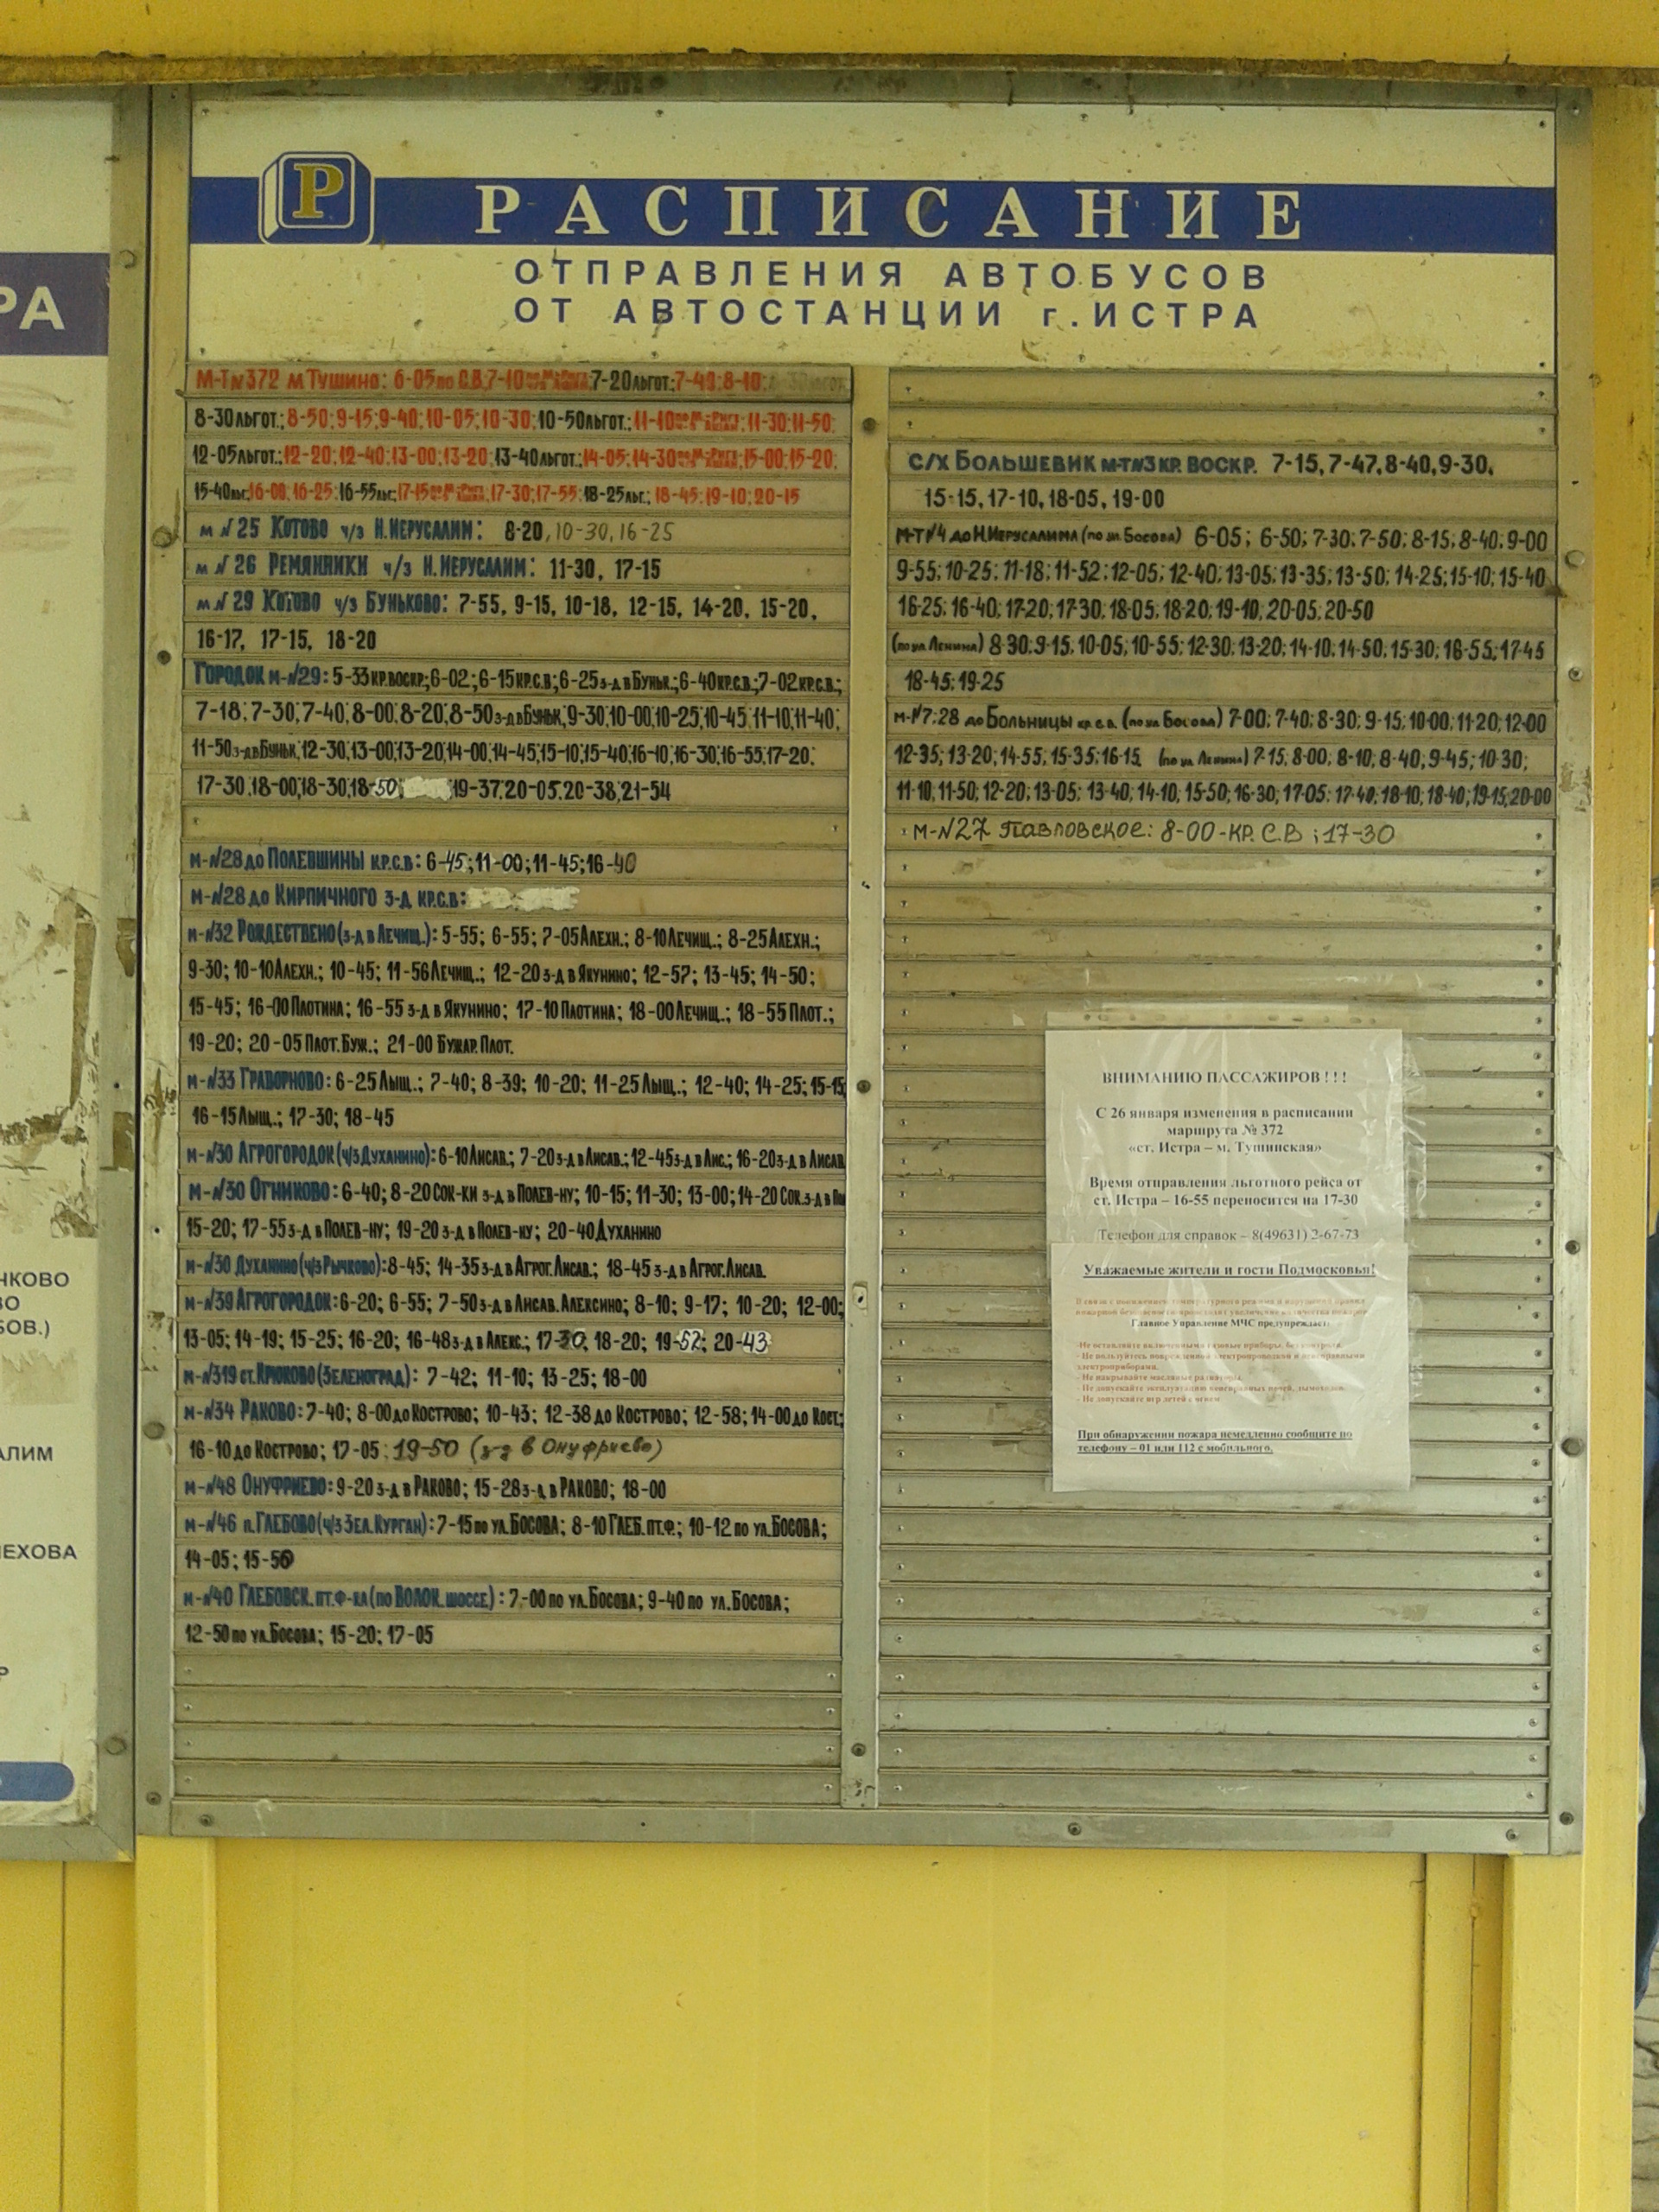 РА
Р
РАСПИСАНИЕ
ОТПРАВЛЕНИЯ АВТОБУСОВ
ОТ АВТОСТАНЦИИ г.ИСТРА
М-Т№372 м Тушино: 6-05 по С.В. 7-10 7-20льгот.; 7-40; 8-10;
8-30льгот.; 8-50; 9-15; 9-40; 10-05; 10-30; 10-50льгот.; 11-10 11-30; 11-50;
12-05льгот.; 12-20; 12-40; 13-00; 13-20; 13-40льгот.; 14-05; 14-30 15-00; 15-20;
15-40льг. 16-00; 16-25; 16-55льг.; 17-15 17-30; 17-55; 18-25льг.; 18-45; 19-10; 20-15
м №25 Котово ч/з Н.Иерусалим: 8-20, 10-30, 16-25
м №26 Ремянники ч/з Н.Иерусалим: 11-30, 17-15
м №29 Котово ч/з Буньково: 7-55, 9-15, 10-18, 12-15, 14-20, 15-20,
16-17, 17-15, 18-20
Городок м-№29: 5-33кр.воскр.; 6-02; 6-15кр.с.в.; 6-25з-д в Буньк.; 6-40кр.с.в.; 7-02кр.с.в.;
7-18; 7-30; 7-40; 8-00; 8-20; 8-50з-д в Буньк; 9-30; 10-00; 10-25; 10-45; 11-10; 11-40;
11-50з-д в Буньк; 12-30; 13-00; 13-20; 14-00; 14-45; 15-10; 15-40; 16-10; 16-30; 16-55; 17-20;
17-30; 18-00; 18-30; 18-50; 19-37; 20-05; 20-38; 21-54
м-№28 до Полевшины кр.с.в: 6-45; 11-00; 11-45; 16-40
м-№28 до Кирпичного з-д кр.с.в:
м-№32 Рождествено(з-д в Лечищ.): 5-55; 6-55; 7-05Алехн.; 8-10Лечищ.; 8-25Алехн.;
9-30; 10-10Алехн.; 10-45; 11-56Лечищ.; 12-20 з-д в Якунино; 12-57; 13-45; 14-50;
15-45; 16-00Плотина; 16-55 з-д в Якунино; 17-10 Плотина; 18-00Лечищ.; 18-55 Плот.;
19-20; 20-05 Плот.Буж.; 21-00 Бужар.Плот.
м-№33 Граворново: 6-25Лыщ.; 7-40; 8-39; 10-20; 11-25Лыщ.; 12-40; 14-25; 15-15
16-15Лыщ.; 17-30; 18-45
м-№30 Агрогородок(ч/з Духанино): 6-10Лисав.; 7-20з-д в Лисав.; 12-45з-д в Лис.; 16-20з-д в Лисав
м-№30 Огниково: 6-40; 8-20Сок-ки з-д в Полев-ну; 10-15; 11-30; 13-00; 14-20 Сок.з-д в
15-20; 17-55з-д в Полев-ну; 19-20 з-д в Полев-ну; 20-40Духанино
м-№30 Духанино(ч/з Рычково): 8-45; 14-35з-д в Агрог.Лисав.; 18-45з-д в Агрог.Лисав.
м-№39 Агрогородок: 6-20; 6-55; 7-50з-д в Лисав.Алексино; 8-10; 9-17; 10-20; 12-00;
13-05; 14-19; 15-25; 16-20; 16-48з-д в Алекс.; 17-30; 18-20; 19-52; 20-43
м-№319 ст.Крюково(Зеленоград): 7-42; 11-10; 13-25; 18-00
м-№34 Раково: 7-40; 8-00до Кострово; 10-43; 12-38 до Кострово; 12-58; 14-00 до Кост;
16-10до Кострово; 17-05; 19-50 (з-д в Онуфриево)
м-№48 Онуфриево: 9-20 з-д в Раково; 15-28з-д в Раково; 18-00
м-№46 п.Глебово(ч/з Зел.Курган): 7-15по ул.Босова; 8-10 Глеб.пт.ф.; 10-12 по ул.Босова;
14-05; 15-50
м-№40 Глебовск.пт.ф-ка(по Волок.шоссе): 7-00 по ул.Босова; 9-40 по ул.Босова;
12-50по ул.Босова; 15-20; 17-05
С/Х Большевик м-т№3 кр. воскр. 7-15, 7-47, 8-40, 9-30,
15-15, 17-10, 18-05, 19-00
М-Т№4 до Н.Иерусалима (по ул. Босова) 6-05; 6-50; 7-30; 7-50; 8-15; 8-40; 9-00
9-55; 10-25; 11-18; 11-52; 12-05; 12-40; 13-05; 13-35; 13-50; 14-25; 15-10; 15-40
16-25; 16-40; 17-20; 17-30; 18-05; 18-20; 19-10; 20-05; 20-50
(по ул Ленина) 8-30; 9-15; 10-05; 10-55; 12-30; 13-20; 14-10; 14-50; 15-30; 16-55; 17-45
18-45; 19-25
м-№7;28 до Больницы кр.с.в. (по ул Босова) 7-00; 7-40; 8-30; 9-15; 10-00; 11-20; 12-00
12-35; 13-20; 14-55; 15-35; 16-15 (по ул Ленина) 7-15; 8-00; 8-10; 8-40; 9-45; 10-30;
11-10; 11-50; 12-20; 13-05; 13-40; 14-10; 15-50; 16-30; 17-05; 17-40; 18-10; 18-40; 19-15; 20-00
м-№27 Павловское: 8-00-кр.с.в ; 17-30
ВНИМАНИЮ ПАССАЖИРОВ ! ! !
С 26 января изменения в расписании
маршрута № 372
«ст. Истра – м. Тушинская»
Время отправления льготного рейса от
ст. Истра – 16-55 переносится на 17-30
Телефон для справок – 8(49631) 2-67-73
Уважаемые жители и гости Подмосковья!
Главное Управление МЧС предупреждает:
- Не допускайте игр детей с огнем.
При обнаружении пожара немедленно сообщите по
телефону – 01 или 112 с мобильного.
ЧКОВО
ВО
БОВ.)
АЛИМ
ЛЕХОВА
Р